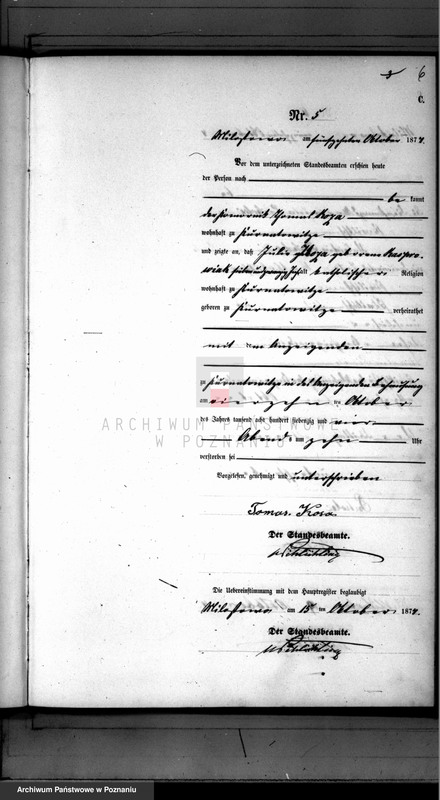 6
C.
Nr. 5
Miloslawo am fünfzehnten Oktober 1874.
Vor dem unterzeichneten Standesbeamten erschien heute
der Person nach
be kannt
der Komornik Thomas Koza
wohnhaft zu Kurnatowitze
und zeigte an, daß Julie Koza geborene Kaspro-
wiak Jahre alt katholischer Religion
wohnhaft zu Kurnatowitze
geboren zu Kurnatowitze verheirathet
mit dem Anzeigenden
zu Kurnatowitze in des Anzeigenden Behausung
am vierzehnten Oktober
des Jahres tausend acht hundert siebenzig und vier
Abends um zehn Uhr
verstorben sei
Vorgelesen, genehmigt und unterschrieben
Tomas Koza
Der Standesbeamte.
Die Uebereinstimmung mit dem Hauptregister beglaubigt
am 15 ten Oktober 1874.
Der Standesbeamte.
ARCHIWUM PAŃSTWOWE
W POZNANIU
Archiwum Państwowe w Poznaniu